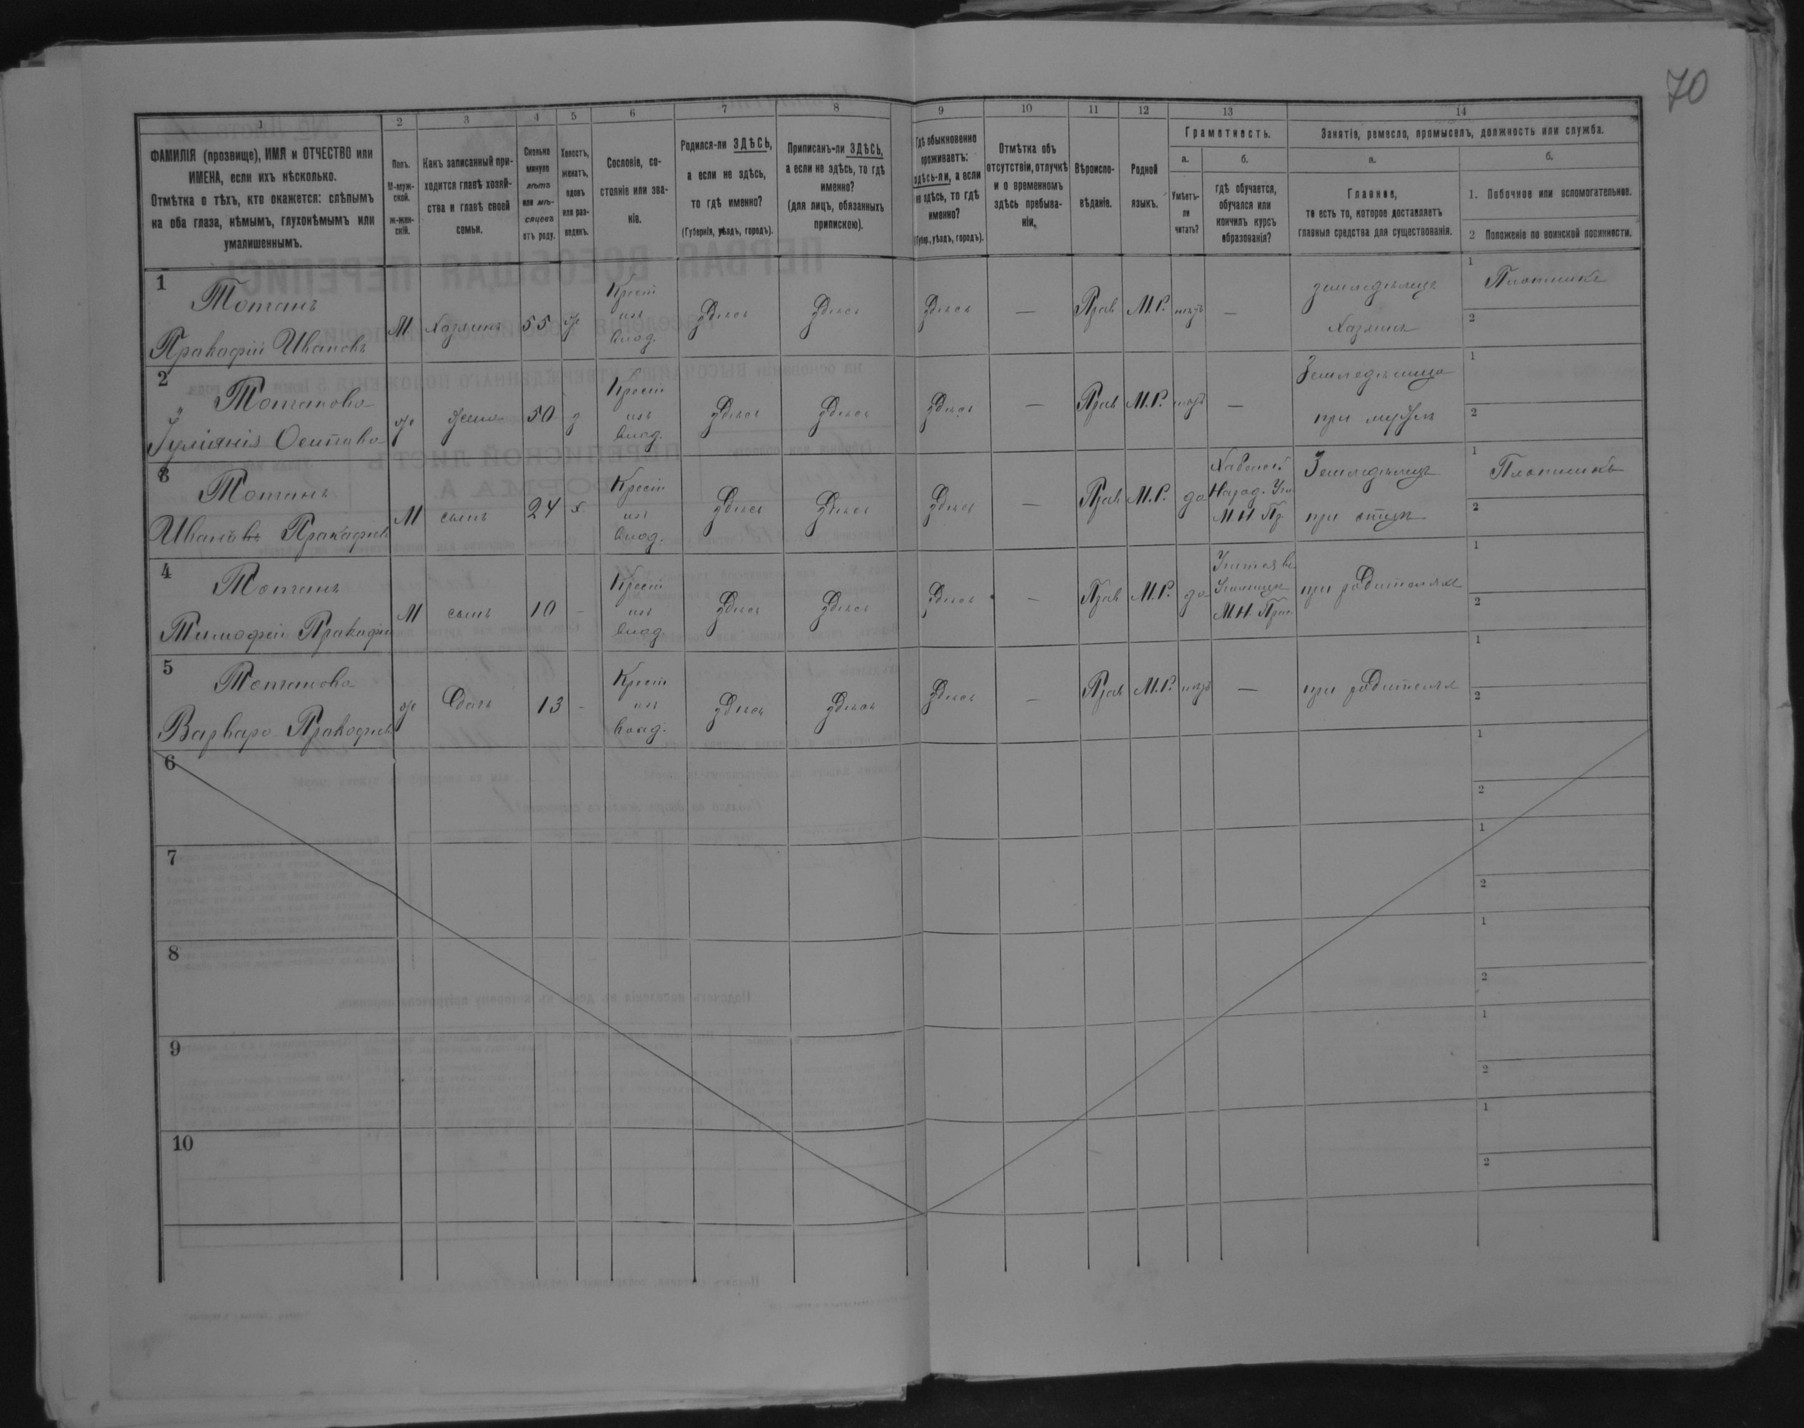 70
1
2
3
4
5
6
7
8
9
10
11
12
13
14
ФАМИЛІЯ (прозвище), ИМЯ и ОТЧЕСТВО или
ИМЕНА, если ихъ нѣсколько.
Отмѣтка о тѣхъ, кто окажется: слѣпымъ
на оба глаза, нѣмымъ, глухонѣмымъ или
умалишеннымъ.
Полъ.
М-муж-
ской.
ж-жен-
скій.
Какъ записанный при-
ходится главѣ хозяй-
ства и главѣ своей
семьи.
Сколько
минуло
лѣтъ
или мѣ-
сяцевъ
отъ роду.
Холостъ,
женатъ,
вдовъ
или раз-
веденъ.
Сословіе, со-
стояніе или зва-
ніе.
Родился-ли ЗДѢСЬ,
а если не здѣсь,
то гдѣ именно?
(Губернія, уѣздъ, городъ).
Приписанъ-ли ЗДѢСЬ,
а если не здѣсь, то гдѣ
именно?
(для лицъ, обязанныхъ
припискою).
Гдѣ обыкновенно
проживаетъ:
здѣсь-ли, а если
не здѣсь, то гдѣ
именно?
(Губер., уѣздъ, городъ).
Отмѣтка объ
отсутствіи, отлучкѣ
и о временномъ
здѣсь пребыва-
ніи.
Вѣроиспо-
вѣданіе.
Родной
языкъ.
Грамотность.
а.
Умѣетъ-
ли
читать?
б.
гдѣ обучается,
обучался или
кончилъ курсъ
образованія?
Занятія, ремесло, промыселъ, должность или служба.
а.
Главное,
то есть то, которое доставляетъ
главныя средства для существованія.
б.
1. Побочное или вспомогательное.
2 Положеніе по воинской повинности.
1
Прокофій Ивановъ
М
Хазяинъ
55
ж
Крест
изъ
влад.
Здесь
Здесь
Здесь
—
Прав
М.Р.
нетъ
—
земледелецъ
Хазяинъ
1
Плотникъ
2
2
Осипова
ж
жена
50
з
Крест
изъ
влад.
Здесь
Здесь
Здесь
—
Прав
М.Р.
нетъ
—
Земледелица
при мужѣ
1
2
3
М
сынъ
24
х
Крест
изъ
влад.
Здесь
Здесь
Здесь
—
Прав
М.Р.
да
Народ. Учи
М Н Пр
Земледелецъ
при отцѣ
1
Плотникъ
2
4
Тимофей
М
сынъ
10
-
Крест
изъ
влад.
Здесь
Здесь
Здесь
—
Прав
М.Р.
да
Учится въ
Училище
М Н Прос
при родителях
1
2
5
Варвара
ж
Дочь
13
-
Крест
изъ
влад.
Здесь
Здесь
Здесь
—
Прав
М.Р.
нетъ
—
при родителях
1
2
6
1
2
7
1
2
8
1
2
9
1
2
10
1
2